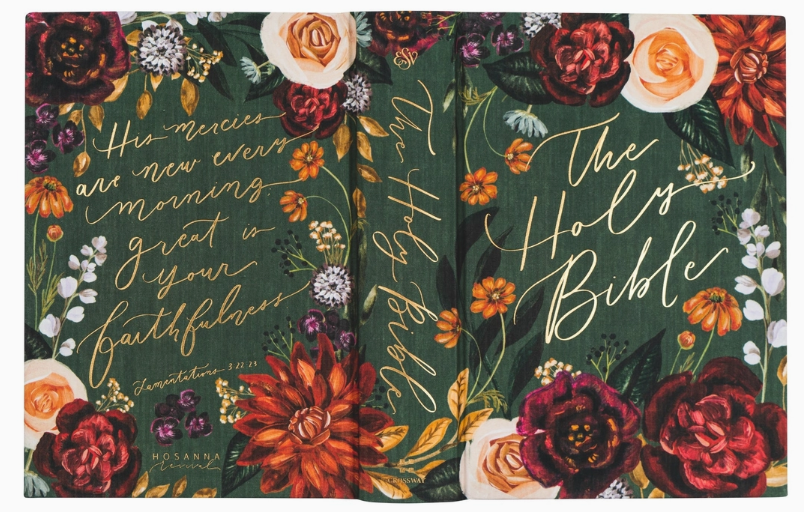 His mercies
are new every
morning
great is
your
faithfulness
Lamentations 3:22-23
HOSANNA
revival
The Holy Bible
CROSSWAY
The
Holy
Bible